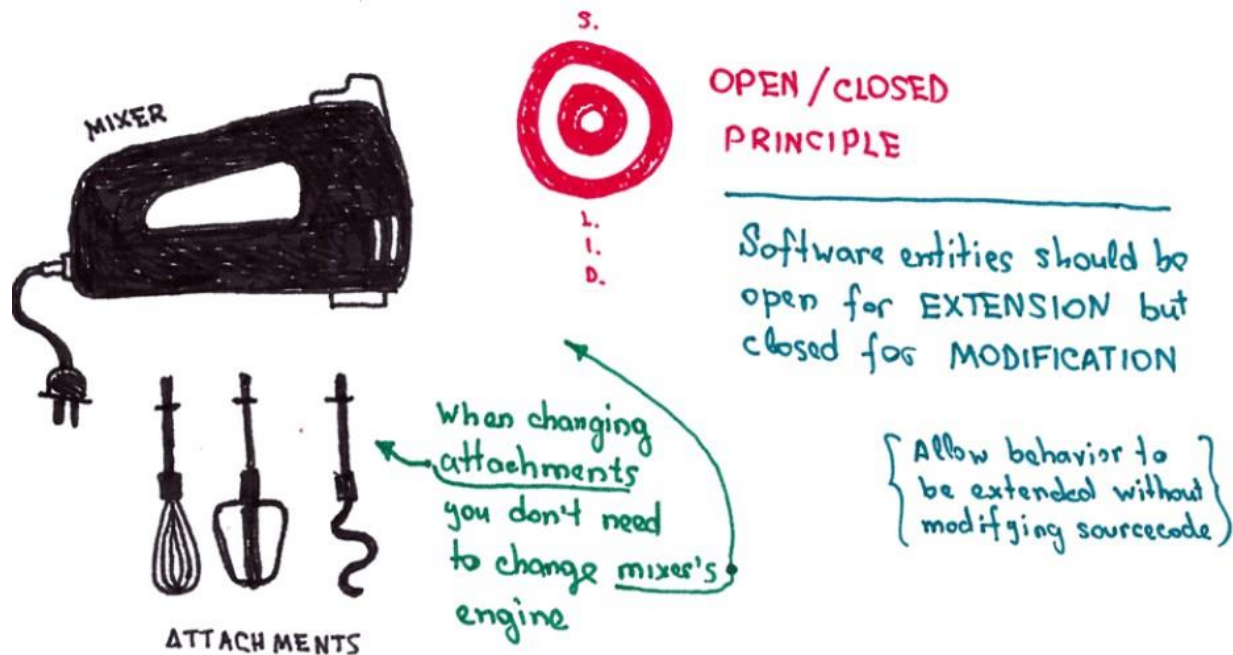 MIXER
S.
L.
I.
D.
OPEN / CLOSED
PRINCIPLE
Software entities should be
open for EXTENSION but
closed for MODIFICATION
{ Allow behavior to
be extended without
modifying sourcecode }
When changing
attachments
you don't need
to change mixer's
engine
ATTACHMENTS